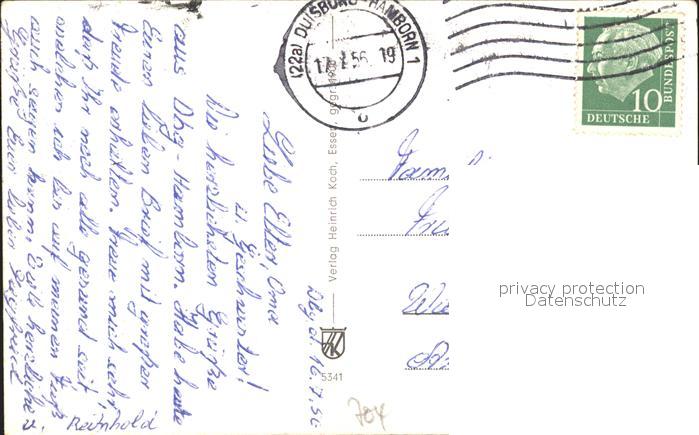 (22a) DUISBURG-HAMBORN 1
17.7.56. 19
c
10
DEUTSCHE
BUNDESPOST
Verlag Heinrich Koch, Essen
5341
privacy protection
Datenschutz
704
Dbg. d. 16.7.56
Liebe Eltern, Oma
u. Geschwister!
Die herzlichsten Grüße
aus Dbg-Hamborn. Habe heute
Euren lieben Brief mit großer
Freude erhalten. Freue mich sehr,
daß Ihr noch alle gesund seid,
welches ich bis auf meinen Fuß
auch sagen kann. Viele herzliche
Grüße Euer lieber
u.
Reinhold